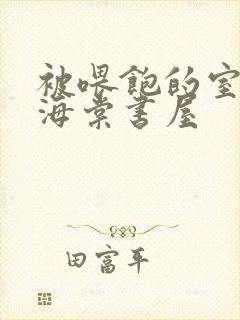 被喂饱的室
海棠书屋
田富平